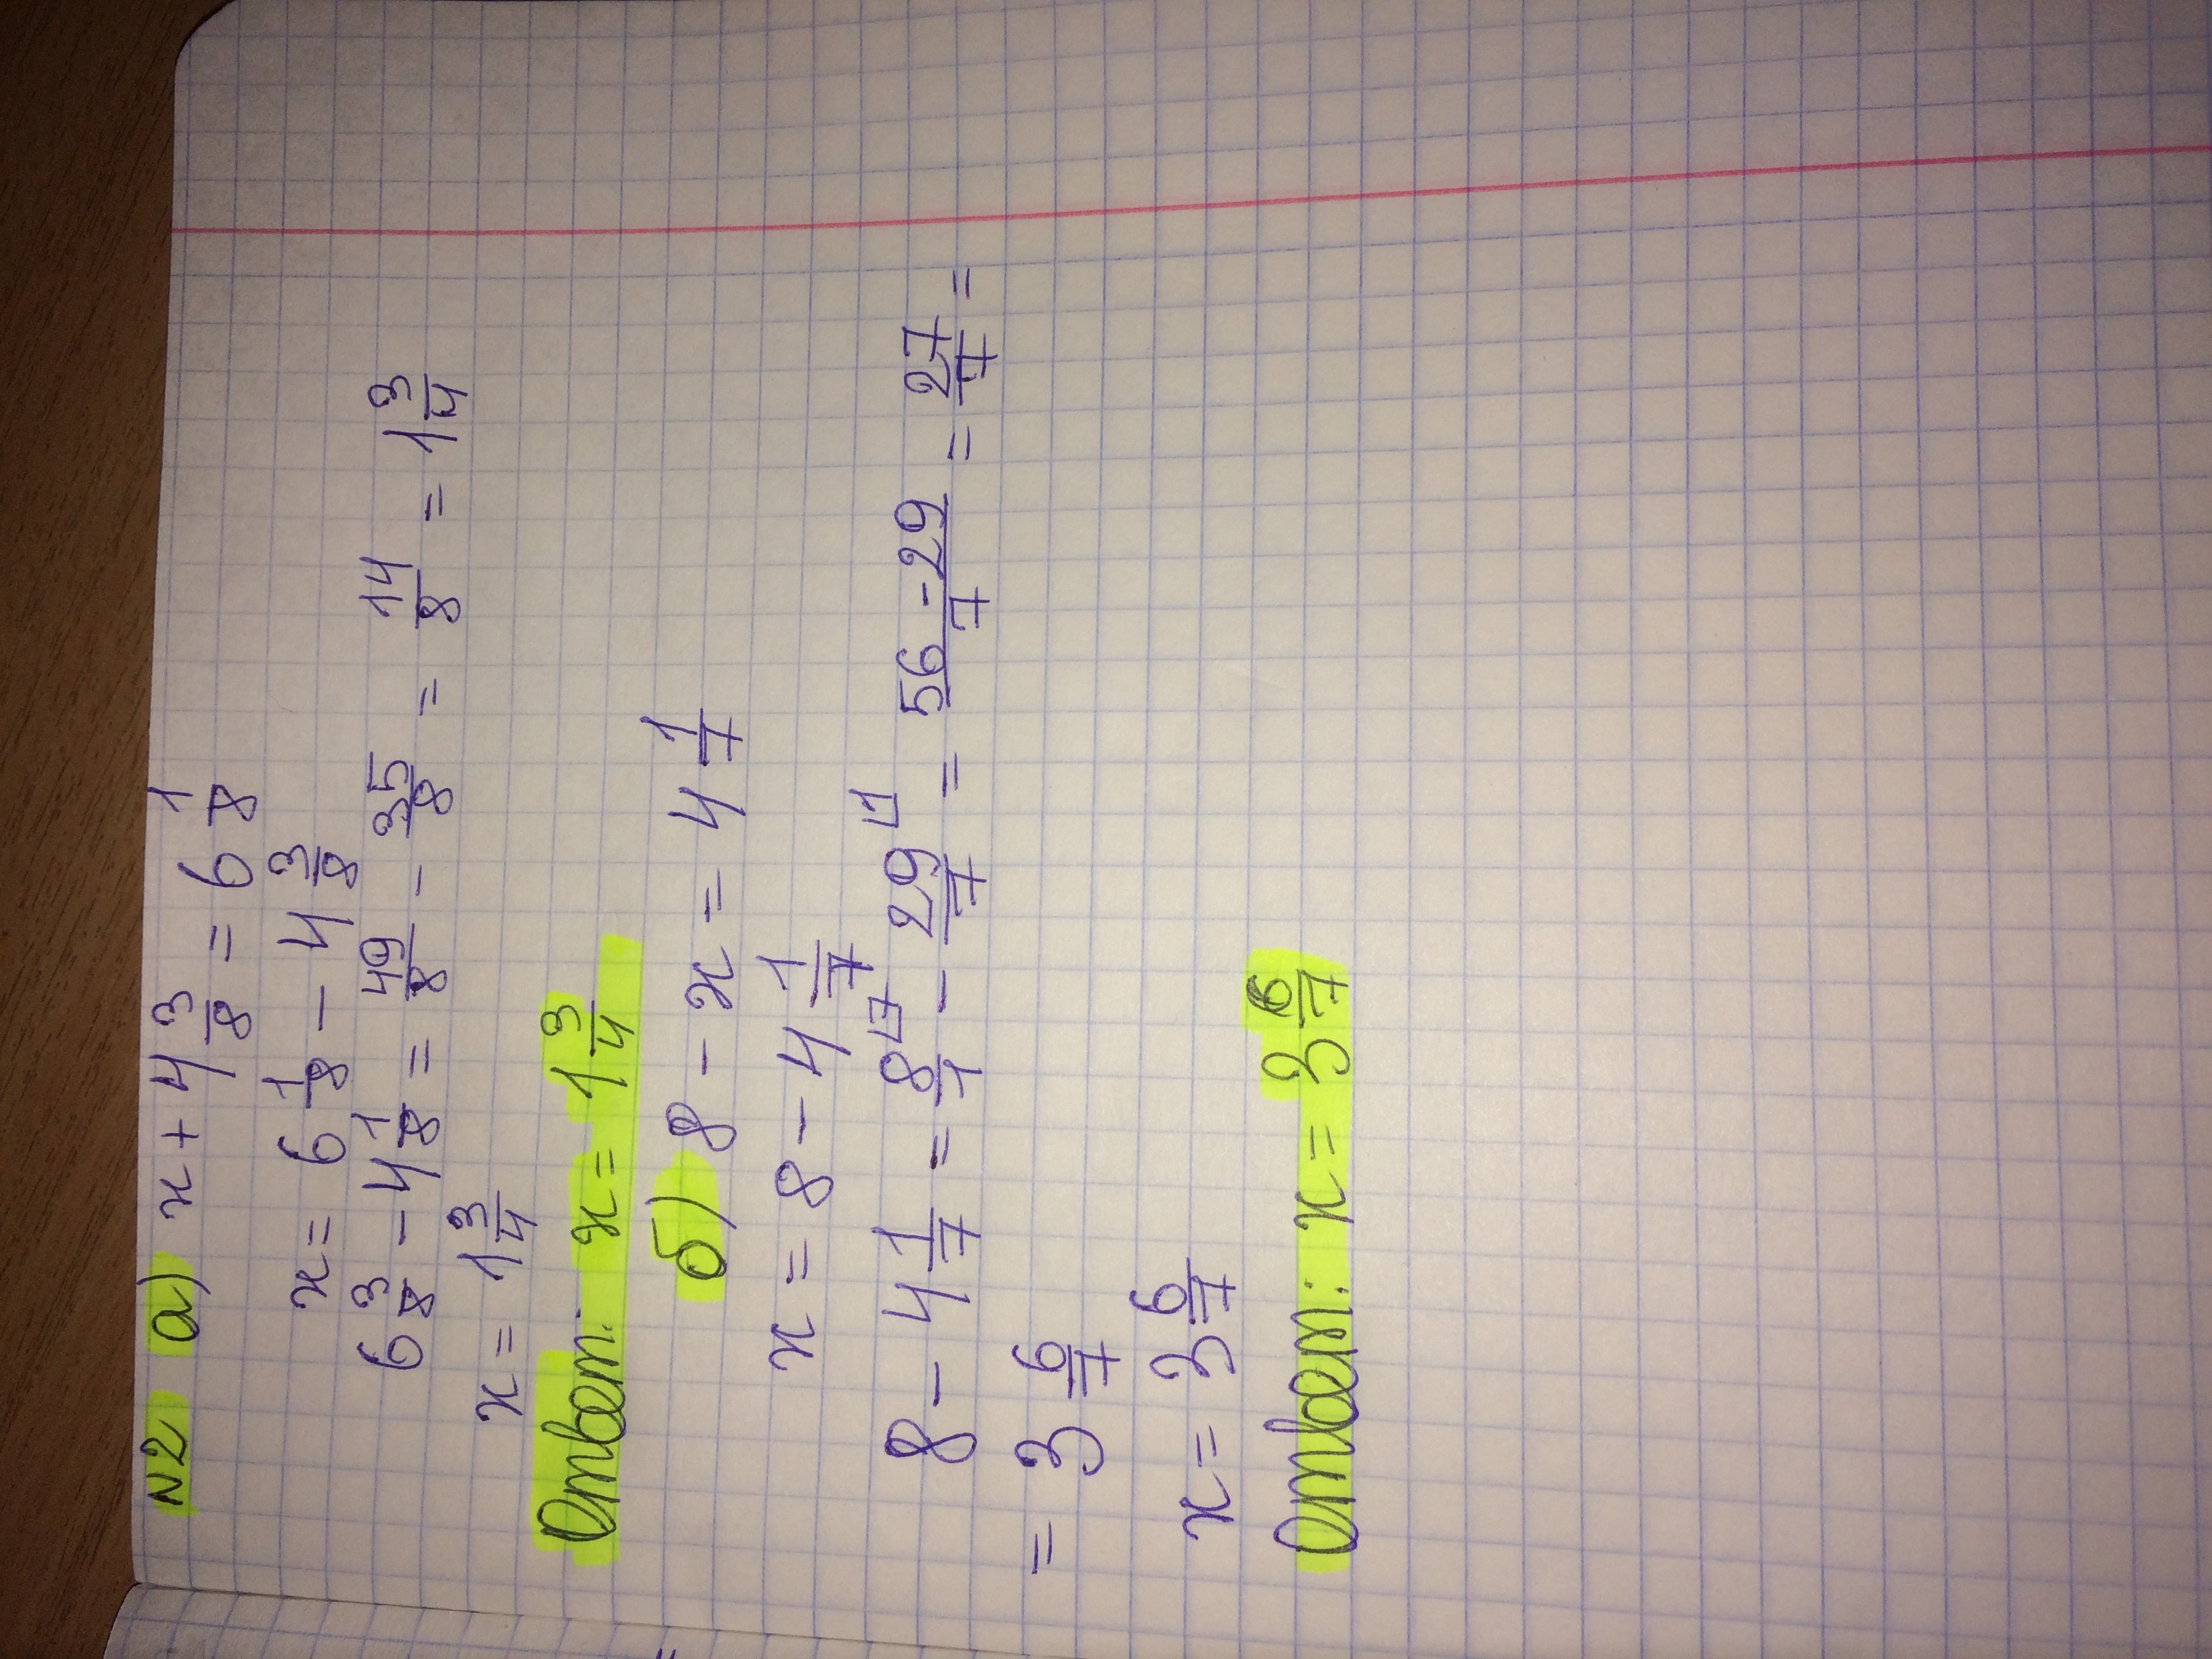 N2 а) x + 4 3/8 = 6 1/8
x = 6 1/8 - 4 3/8
6 3/8 - 4 1/8 = 49/8 - 35/8 = 14/8 = 1 3/4
x = 1 3/4
Ответ: x = 1 3/4
б) 8 - x = 4 1/7
x = 8 - 4 1/7
8 - 4 1/7 = 8/1 ⌊7 - 29/7 ⌊1 = 56 - 29/7 = 27/7 =
= 3 6/7
x = 3 6/7
Ответ: x = 3 6/7